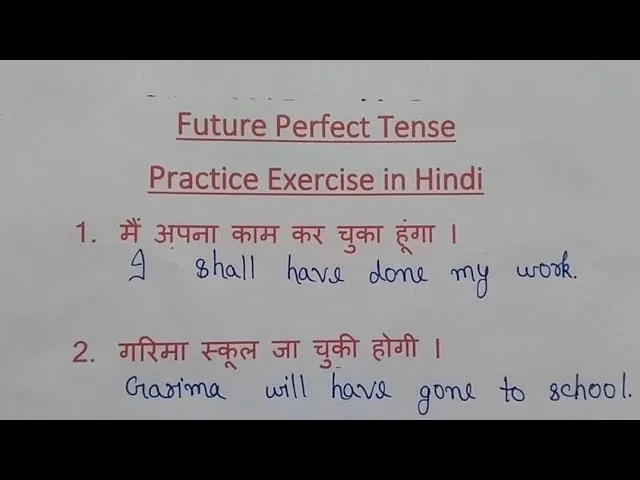 Future Perfect Tense
Practice Exercise in Hindi
1. मैं अपना काम कर चुका हूंगा ।
I shall have done my work.
2. गरिमा स्कूल जा चुकी होगी ।
Garima will have gone to school.